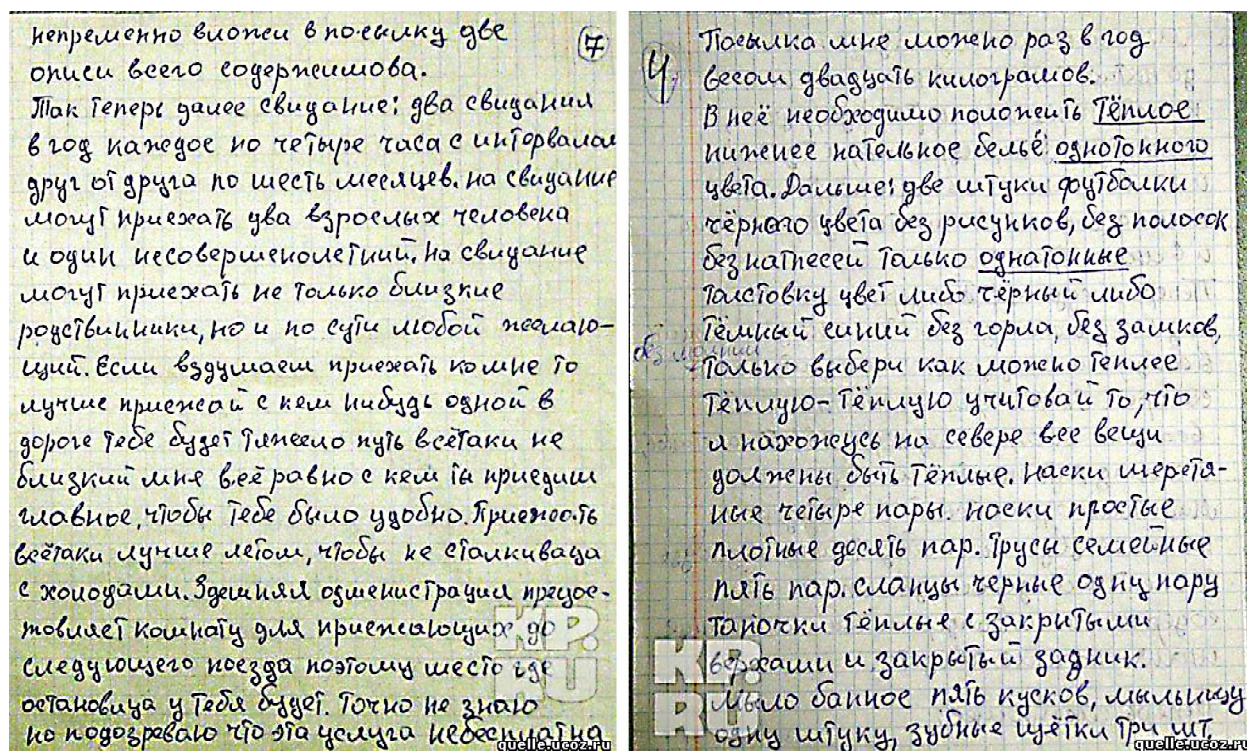 непременно вложи в посылку две
описи всего содержимова.
Так теперь далее свидание: два свидания
в год каждое по четыре часа с интервалам
друг от друга по шесть месяцев. на свидание
могут приехать два взрослых человека
и один несовершенолетний. На свидание
могут приехать не только близкие
родствинники, но и по сути любой желаю-
щий. Если вздумаеш приехать ко мне то
лучше приежай с кем нибудь одной в
дороге тебе будет тяжело путь всётаки не
близкий мне всё равно с кем ты приедиш
главное, чтобы тебе было удобно. Приежать
всётаки лучше летом, чтобы не сталкиваца
с холодами. Здешняя одменистрация предос-
товляет комнату для приежающих до
следующего поезда поэтому место где
остановица у тебя будет. Точно не знаю
но подозреваю что эта услуга небесплатна
7
KP.RU
quelle.ucoz.ru
4
Посылка мне можно раз в год
весом двадцать килограмов.
В неё необходимо положить тёплое
нижнее нательное бельё однотонного
цвета. Дальше: две штуки футболки
чёрного цвета без рисунков, без полосок
без натписей только однатонные
толстовку цвет либо чёрный либо
тёмный синий без горла, без замков,
без молнии
только выбери как можно теплее
тёплую-тёплую учитовай то, что
я нахожусь на севере все вещи
должены быть тёплые. Наски шерстя-
ные четыре пары. носки простые
плотные десять пар. Трусы семейные
пять пар. сланцы черные одну пару
тапочки тёплые с закрытыми
верхами и закрытый задник.
Мыло банное пять кусков, мыльницу
одну штуку, зубные щётки три шт,
KP.RU
quelle.ucoz.ru